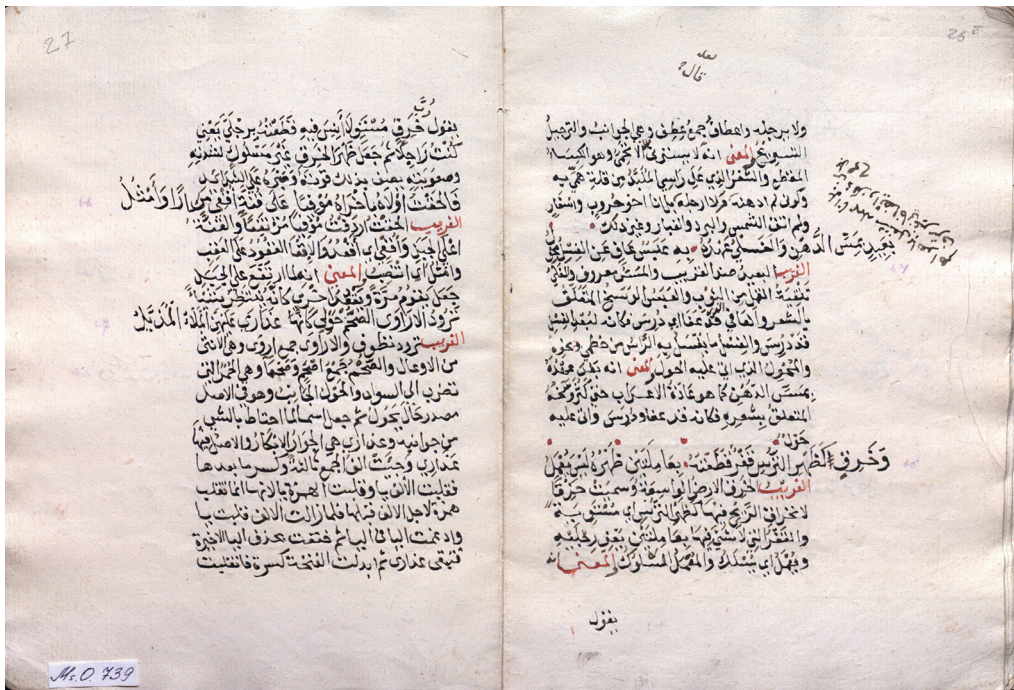 26
قال
ولا برجله واعطاف جمع عطف وهي الجوانب والترجيل
التسريح المعنى انه لا يستره الا الاتحمي وهو الكساء
المقطع والشعر الذي على راسي الملبد من قلة همي به
وكوني لم ادهنه ولم ارجله بل انا اخو حروب واسفار
ولم اتق الشمس والبرد والغبار وغير ذلك
بعيد بمس الدهن والفلي عهده به عبس عاف عن الغسل محول
الغريب البعيد ضد القريب والمس معروف والفلي
تنقية القمل من الثوب والعبس الوسخ المتعلق
بالشعر والعافي هنا اي درس مكانه
والغسل ما يغتسل به الراس من خطمي وغيره
والمحول الذي اتى عليه الحول المعنى انه تطاول عهده
بمس الدهن كما هو عادة الاعراب حتى كثر وسخه
المتعلق بشعره فكانه قد عفا ودرس واتى عليه
حول
وخرق كظهر الترس قفر قطعته بعاملتين ظهره ليس يعمل
الغريب الخرق الارض الواسعة وسميت خرقا
لانخراق الريح فيها كظهر الترس اي مستوية
والقفر التي لا شيء بها بعاملتين يعني رجليه
ويعمل اي يسلك والمعمل المسلوك المعنى
يقول
27
يقول رب خرق مستو لا انيس فيه قطعته برجلي يعني
كنت راجلا ثم جعل ظهر الخرق غير مسلوك لشدته
وصعوبته يصف بذلك قوته وصبره على الشدائد
فالحقت اولاه باخراه موفيا على قنة اقعي مرارا وامثل
الغريب الحقت اردفت موفيا مرتفعا والقنة
اعلى الجبل واقعي اي اقعد والاقعا القعود على العقب
وامثل اي انتصب المعنى انه لما ارتفع على الجبل
جعل يقوم مرة ويقعد اخرى كانه ينتظر شيئا
ترود الاراوى الصحم حولي كانها عذارى عليهن الملاء المذيل
الغريب ترود تطوف والاراوى جمع اروى وهي الانثى
من الاوعال والصحم جمع اصحم وصحما وهي الحمر التي
تضرب الى السواد والحول الجانب وهو في الاصل
مصدر حال يحول ثم جعل اسما لما احاط بالشي
من جوانبه وعذارى هي الجوار الابكار والاصل فيها
عذاري وجيت الف الجمع ثالثة وكسر ما بعدها
فقلبت الالف يا وقلبت الهمزة يا لانها انما تقلب
همزة لاجل الالف قبلها فلما زالت الالف قلبت يا
وادغمت اليا في اليا ثم خففت بحذف اليا الاخيرة
فبقي عذاري ثم ابدلت الفتحة كسرة فانقلبت
Ms. O. 739